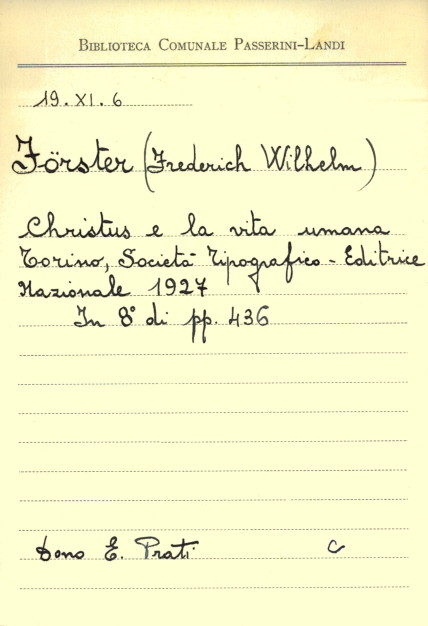 BIBLIOTECA COMUNALE PASSERINI-LANDI
19.XI.6
Förster (Frederich Wilhelm)
Christus e la vita umana
Torino, Società Tipografico - Editrice
Nazionale 1927
In 8° di pp. 436
Dono E. Prati C